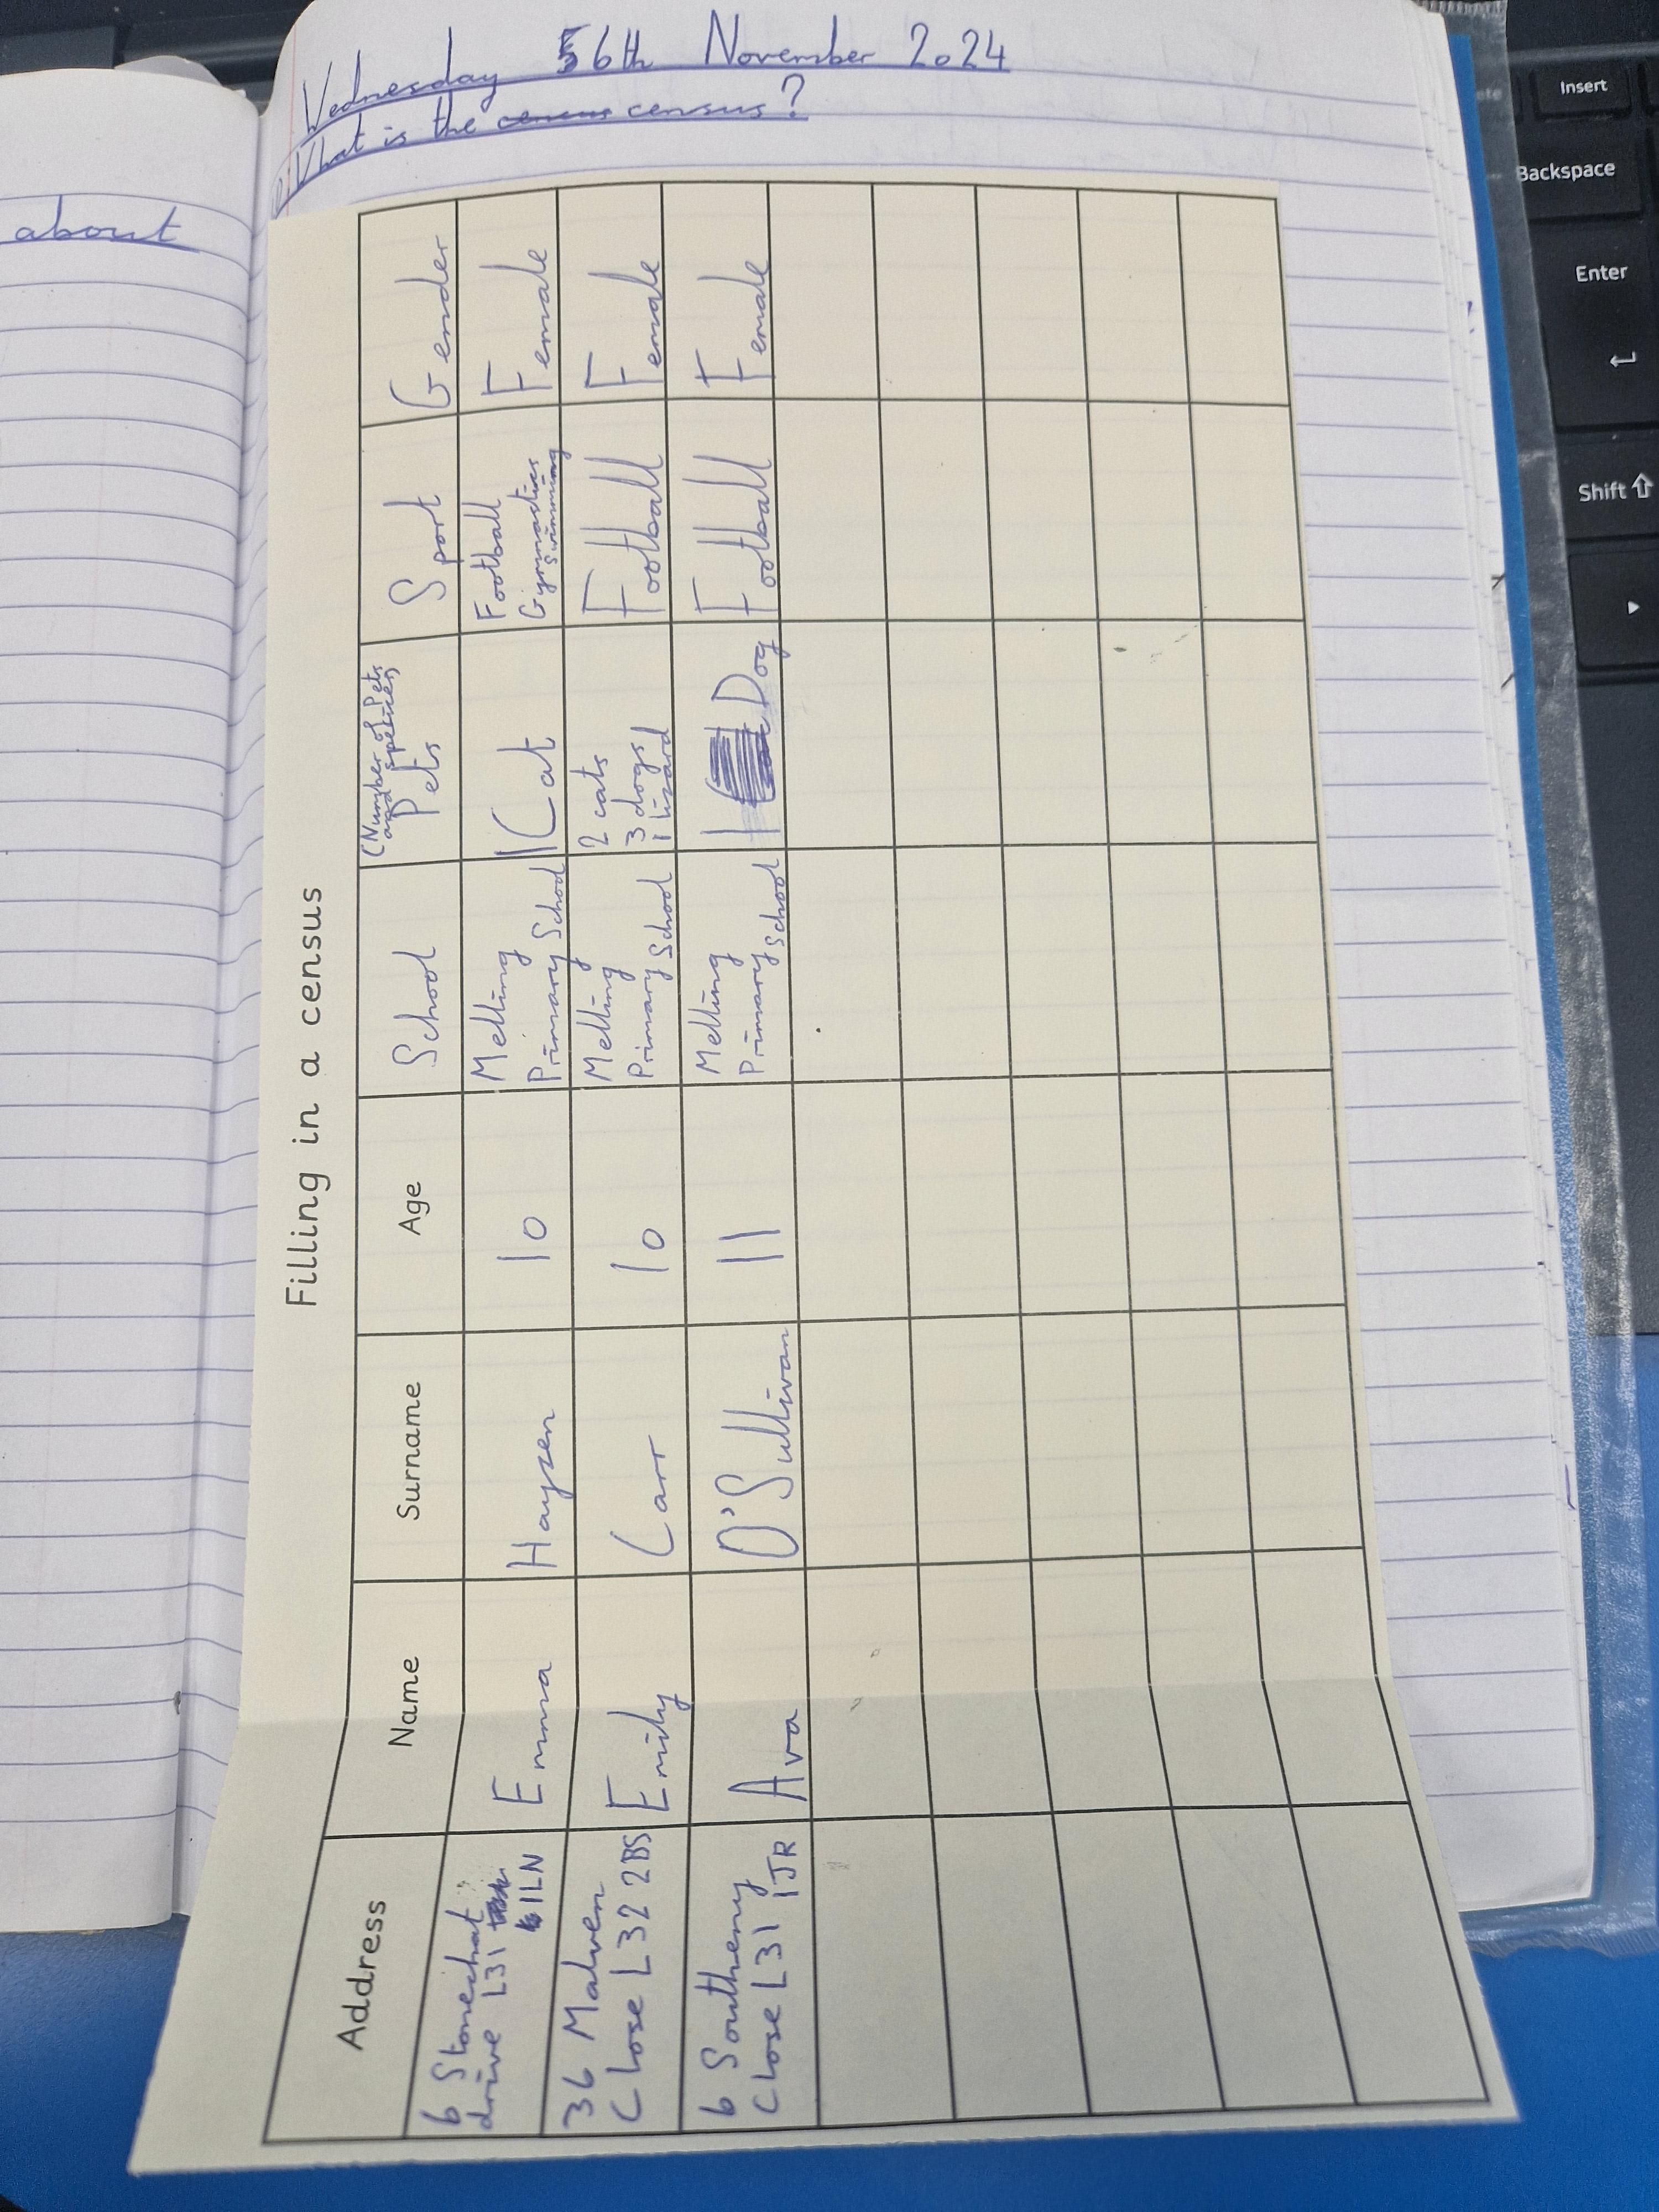 about
Wednesday 6th November 2024
What is the census census?
Filling in a census
Address Name Surname Age School (Number of Pets and species) Pets Sport Gender
6 Stonechat drive L31 1LN Emma Hayzen 10 Melling Primary School 1 Cat Football Gymnastics Swimming Female
36 Malven Close L32 2BS Emily Carr 10 Melling Primary School 2 cats 3 dogs 1 lizard Football Female
6 Sourtheny Close L31 1JR Ava O'Sullivan 11 Melling Primary School 1 Dog Football Female
Insert
Backspace
Enter
Shift